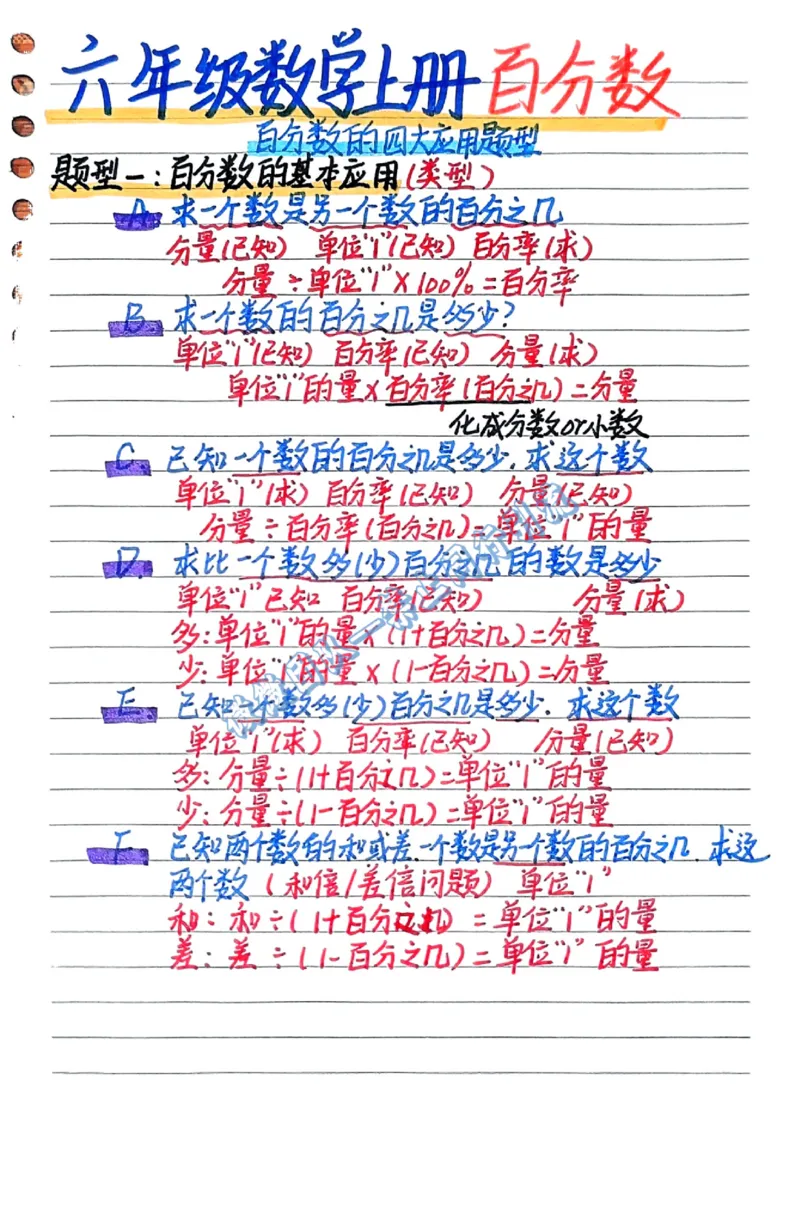 六年级数学上册 百分数
百分数的四大应用题型
题型一:百分数的基本应用(类型)
A. 求一个数是另一个数的百分之几
分量(已知) 单位"1"(已知) 百分率(求)
分量÷单位"1"×100%=百分率
B. 求一个数的百分之几是多少?
单位"1"(已知) 百分率(已知) 分量(求)
单位"1"的量×百分率(百分之几)=分量
化成分数or小数
C. 已知一个数的百分之几是多少,求这个数
单位"1"(求) 百分率(已知) 分量(已知)
分量÷百分率(百分之几)=单位"1"的量
D. 求比一个数多(少)百分之几的数是多少
单位"1"已知 百分率(已知) 分量(求)
多:单位"1"的量×(1+百分之几)=分量
少:单位"1"的量×(1-百分之几)=分量
E. 已知一个数多(少)百分之几是多少.求这个数
单位"1"(求) 百分率(已知) 分量(已知)
多:分量÷(1+百分之几)=单位"1"的量
少:分量÷(1-百分之几)=单位"1"的量
F. 已知两个数的和或差.一个数是另一个数的百分之几.求这
两个数(和倍/差倍问题) 单位"1"
和:和÷(1+百分之几)=单位"1"的量
差:差÷(1-百分之几)=单位"1"的量